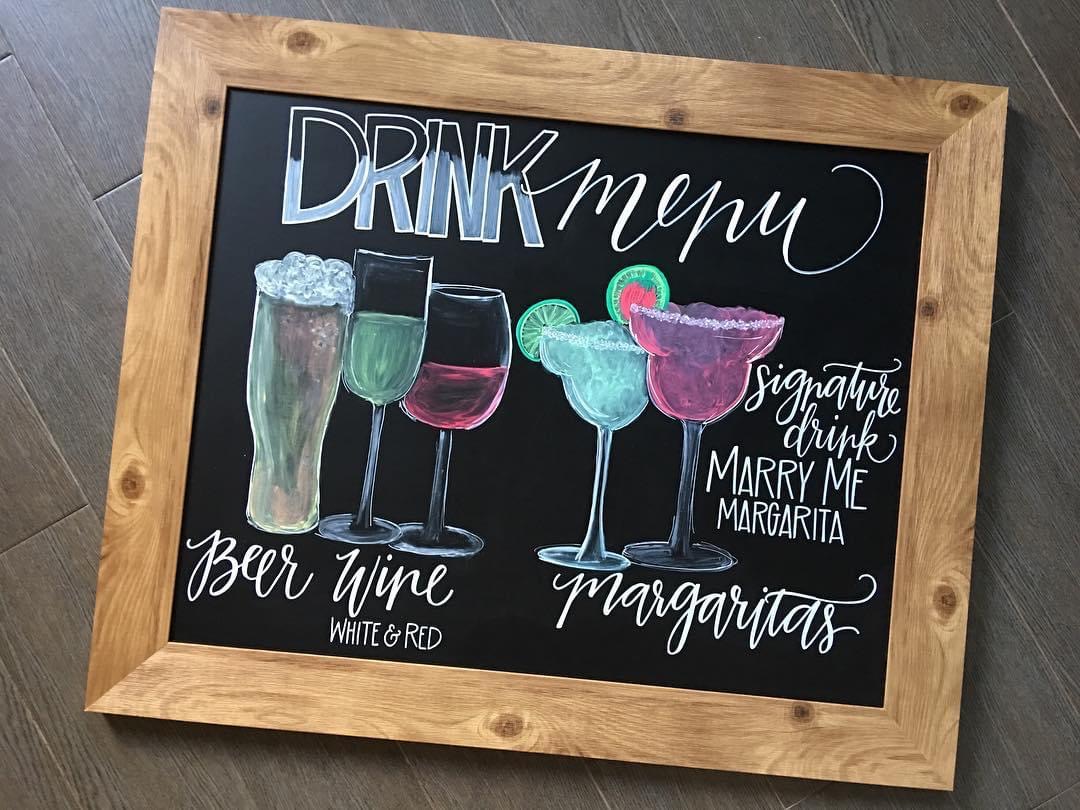 DRINK menu
signature
drink
MARRY ME
MARGARITA
Beer Wine
WHITE & RED
margaritas